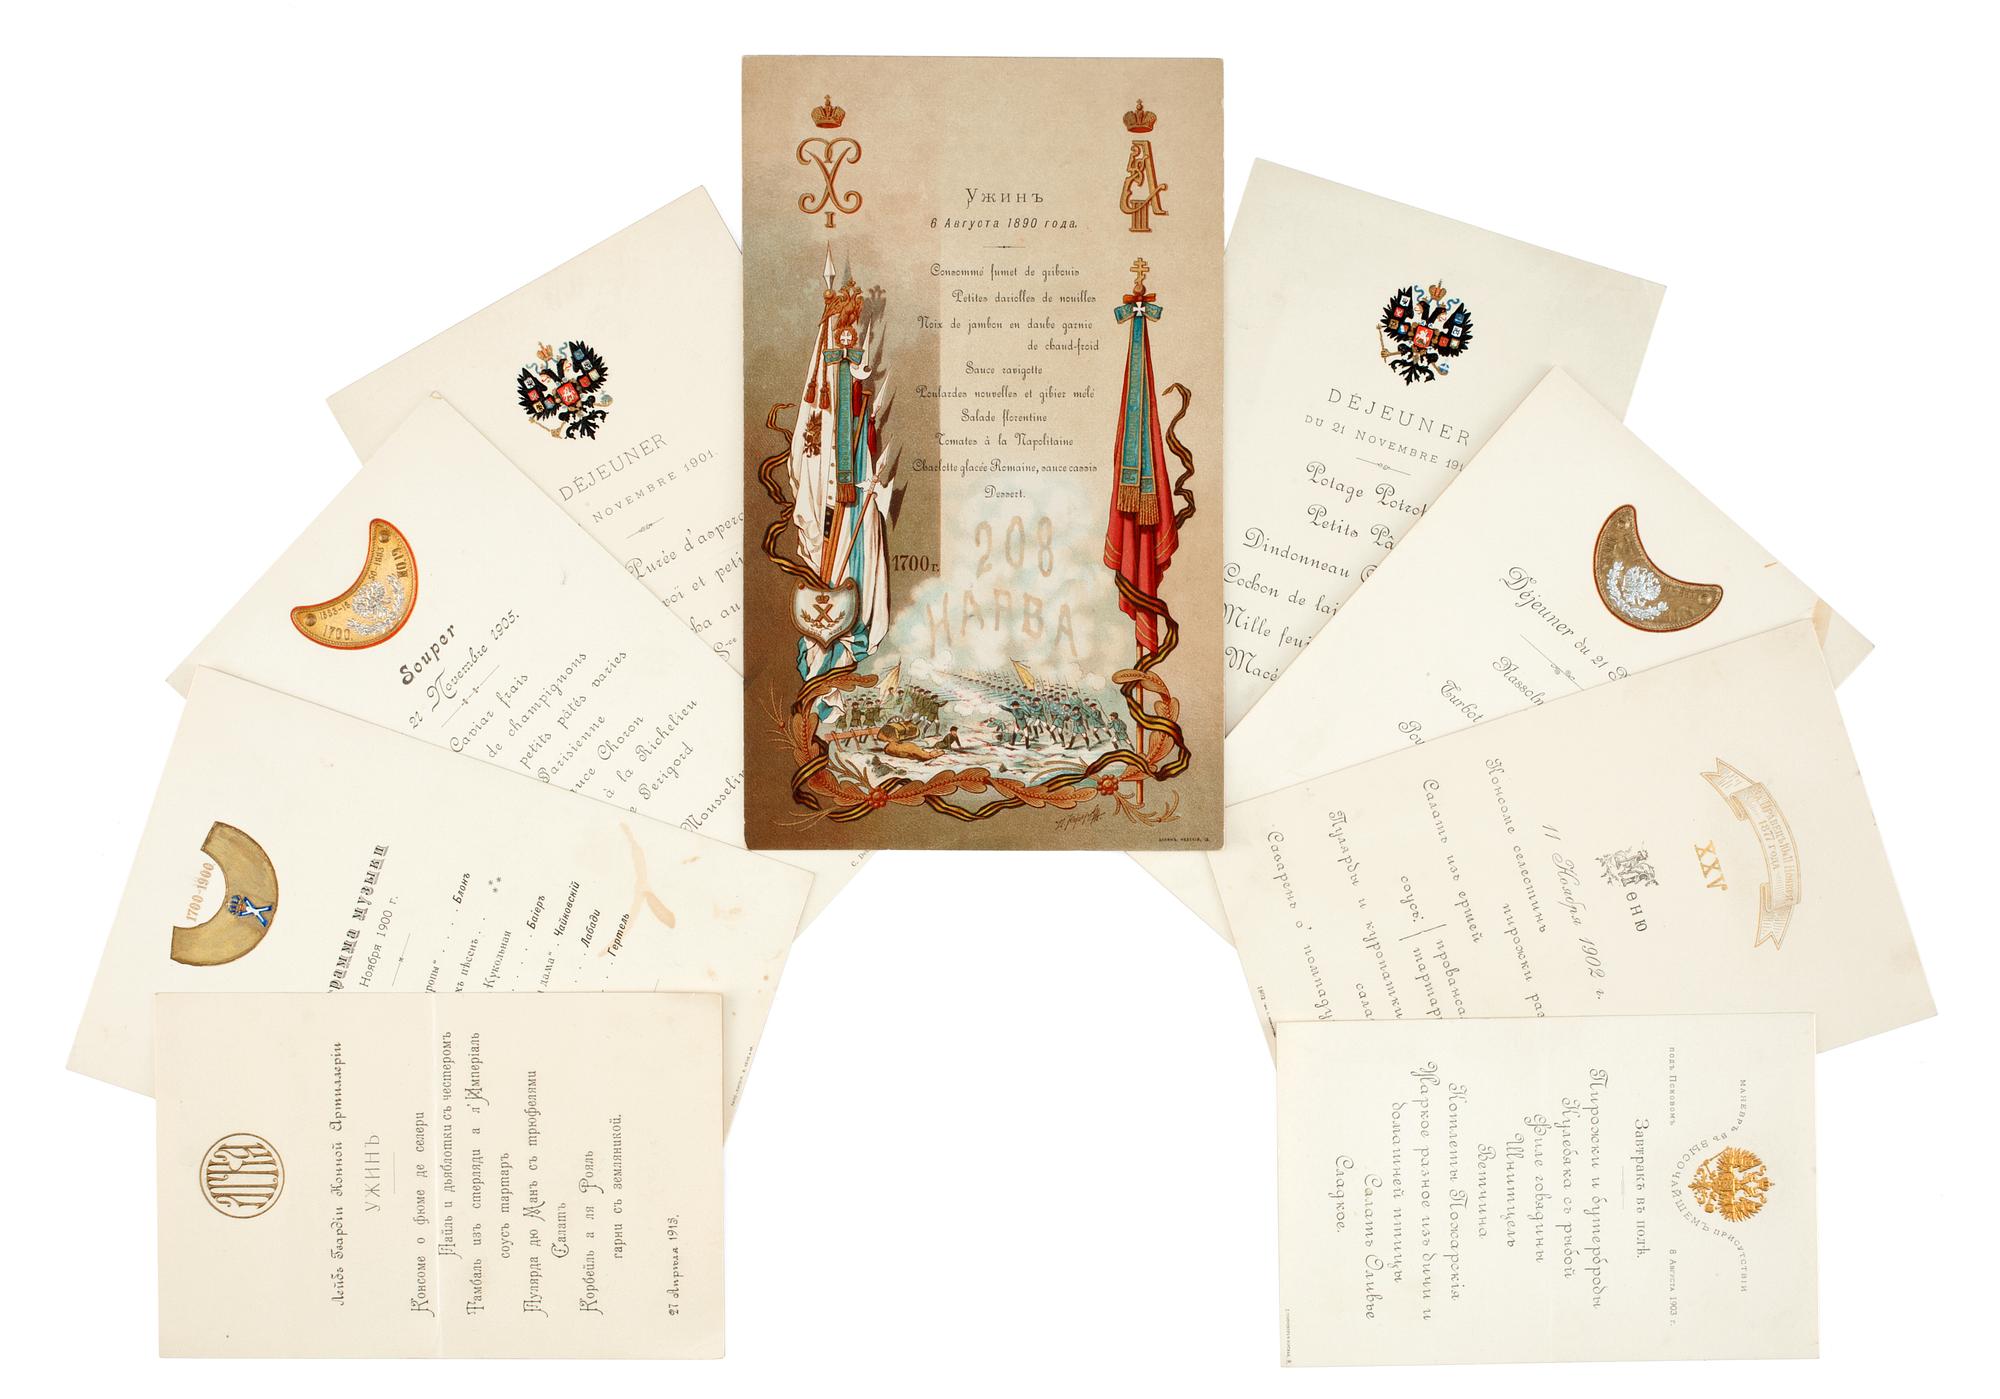 Ужинъ
6 Августа 1890 года.
Consommé fumet de gribouis
Petites dariolles de nouilles
Noix de jambon en daube garnie
de chaud-froid
Sauce ravigotte
Poulardes nouvelles et gibier mêlé
Salade florentine
Tomates à la Napolitaine
Charlotte glacée Romaine, sauce cassis
Dessert.
1700 г.
208
НАРВА
DÉJEUNER
NOVEMBRE 1901.
Purée d'asper
et peti
au
Souper
22 Novembre 1905.
Caviar frais
de champignons
petits pâtés varies
Parisienne
Choron
à la Richelieu
Perigord
Mousselin
1700.
1700-1900
музыки
Ноября 1900 г.
Блонъ
пѣсенъ
Кукольная
Баіеръ
дама" Чайковскій
Лабади
Гертель
Лейбъ Гвардіи Конной Артиллеріи
УЖИНЪ
Консоме о фюме де селери
Пайль и дьяблотки съ честеромъ
Тамбаль изъ стерляди а л'Имперіаль
соусъ тартаръ
Пулярда дю Манъ съ трюфелями
Салатъ
Корбейль а ля Рояль
гарни съ земляникой.
27 Апрѣля 1913.
DÉJEUNER
DU 21 NOVEMBRE 191
Potage Potro
Petits Pâ
Dindonneau
Cochon de lai
Mille feui
Macé
Déjeuner du 21
Turbot
1877 года
XXV
Меню
11 Ноября 1902 г.
Консоме селестинъ
пирожки раз
Салатъ изъ ершей
соусъ: прованса
тартар
Пулярды и куропатки
сала
Саваренъ о, помпаду
МАНЕВРЪ ВЪ ВЫСОЧАЙШЕМЪ ПРИСУТСТВІИ
ПОДЪ ПСКОВОМЪ
8 АВГУСТА 1903 г.
Завтракъ въ полѣ.
Пирожки и бутерброды
Кулебяка съ рыбой
Филе говядины
Шнитцель
Ветчина
Котлеты Пожарскія
Жаркое разное изъ дичи и
домашней птицы
Салатъ Оливье
Сладкое.